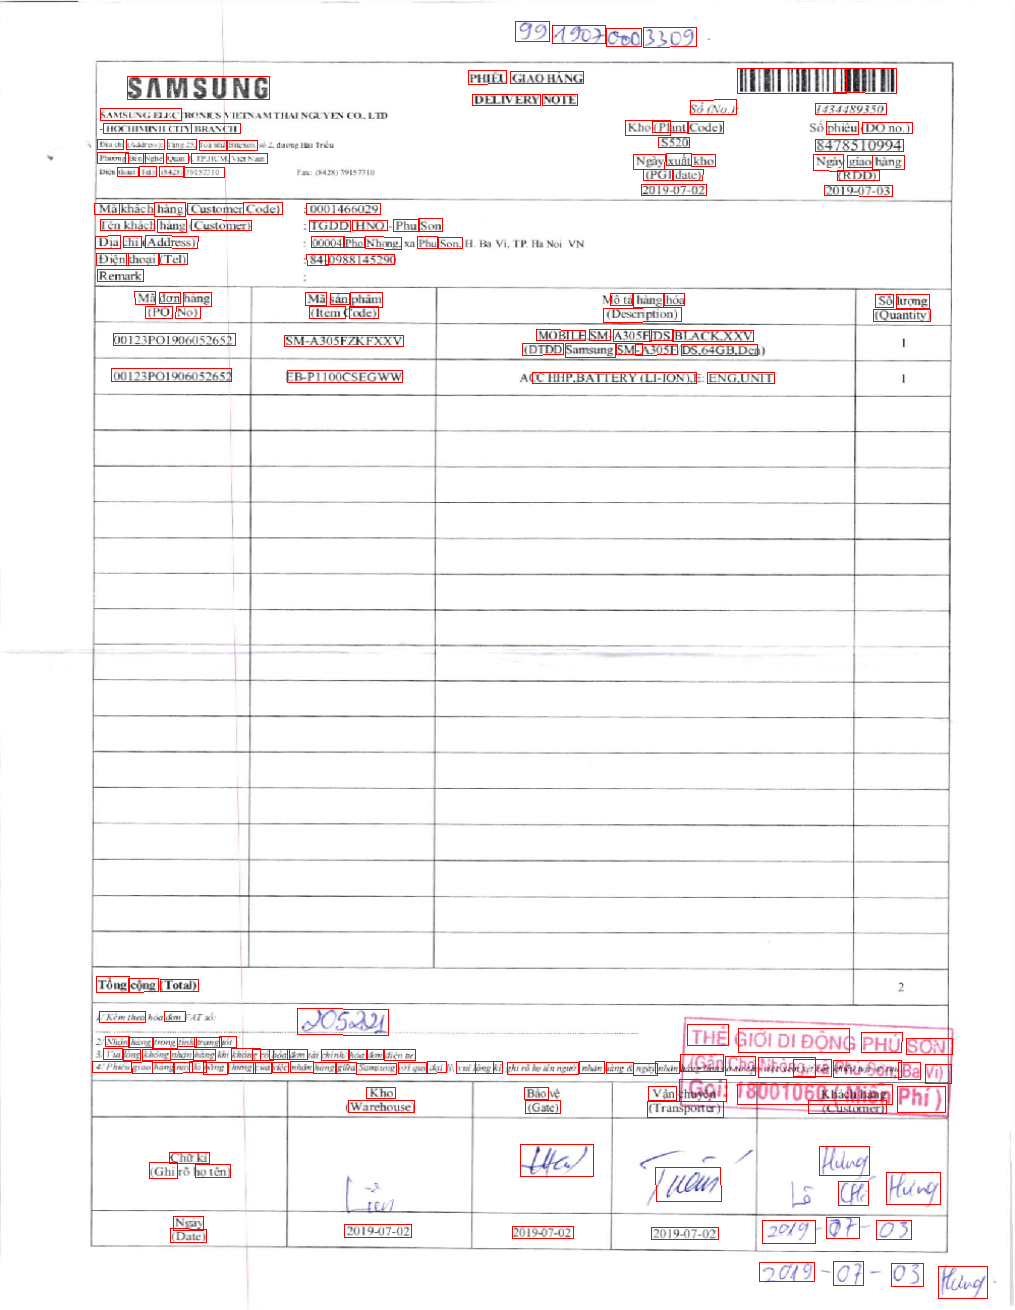 9919070003309
SAMSUNG
PHIẾU GIAO HÀNG
DELIVERY NOTE
SAMSUNG ELECTRONICS VIETNAM THAI NGUYEN CO., LTD
- HOCHIMINH CITY BRANCH
Địa chỉ (Address): Tầng 25, Tòa nhà Bitexco, số 2, đường Hải Triều
Phường Bến Nghé, Quận 1, TP.HCM, Việt Nam
Điện thoại (Tel): (8428) 39157310 Fax: (8428) 39157310
Số (No.): 1434489350
Kho (Plant Code) Số phiếu (DO no.)
S520 8478510994
Ngày xuất kho Ngày giao hàng
(PGI date) (RDD)
2019-07-02 2019-07-03
Mã khách hàng (Customer Code) : 0001466029
Tên khách hàng (Customer) : TGDD_HNO - Phu Son
Địa chỉ (Address) : 00004 Pho Nhong, xa Phu Son, H. Ba Vi, TP. Ha Noi VN
Điện thoại (Tel) : 84-0988145290
Remark :
Mã đơn hàng Mã sản phẩm Mô tả hàng hóa Số lượng
(PO No) (Item Code) (Description) (Quantity)
00123PO1906052652 SM-A305FZKFXXV MOBILE,SM-A305F/DS,BLACK,XXV 1
(DTDD Samsung SM-A305F/DS,64GB,Den)
00123PO1906052652 EB-P1100CSEGWW ACC HHP,BATTERY (LI-ION),E: ENG,UNIT 1
Tổng cộng (Total) 2
1/ Kèm theo hóa đơn VAT số: 205221
2/ Nhận hàng trong tình trạng tốt
3/ Vui lòng không nhận hàng khi không có hóa đơn tài chính/ hóa đơn điện tử
4/ Phiếu giao hàng này là bằng chứng của việc nhận hàng giữa Samsung với quý đại lý, vui lòng kí, ghi rõ họ tên người nhận hàng & ngày nhận hàng
THẾ GIỚI DI ĐỘNG PHÚ SƠN
(Gần Chợ Nhông, xã Phú Sơn, Ba Vì)
Gọi: 18001060 (Miễn Phí)
Kho Bảo vệ Vận chuyển Khách hàng
(Warehouse) (Gate) (Transporter) (Customer)
Chữ kí
(Ghi rõ họ tên)
Liên Tuấn Hưng
Lê Chí Hưng
Ngày
(Date) 2019-07-02 2019-07-02 2019-07-02 2019-07-03
2019-07-03 Hưng